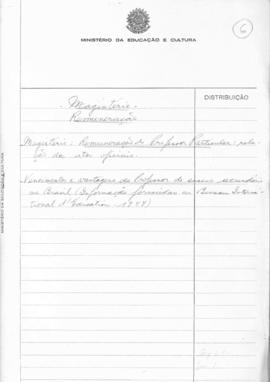 6
MINISTÉRIO DA EDUCAÇÃO E CULTURA
DISTRIBUIÇÃO
Magistério -
Remuneração
Magistério: Remuneração do Professor Particular: rela-
ção de atos oficiais.
Vencimentos e vantagens do Professor de ensino secundário
no Brasil (Informações fornecidas ao Bureau Interna-
tional d'Education - 1948)
MINISTÉRIO DA EDUCAÇÃO E CULTURA